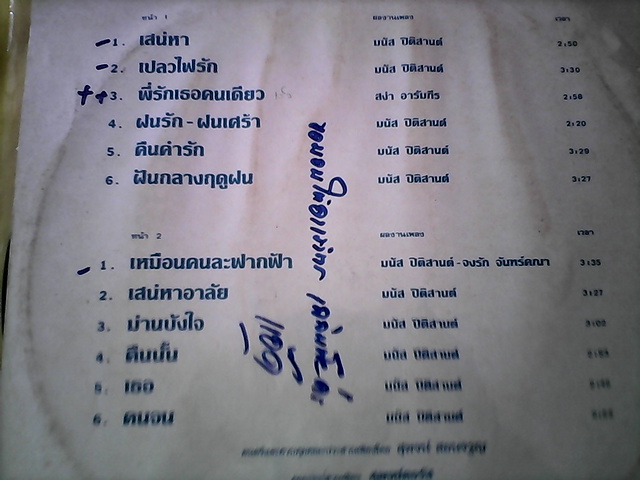 หน้า 1 ผลงานเพลง เวลา
1. เสน่หา มนัส ปิติสานต์ 2:50
2. เปลวไฟรัก มนัส ปิติสานต์ 3:30
3. พี่รักเธอคนเดียว สง่า อารัมภีร 2:58
4. ฝนรัก-ฝนเศร้า มนัส ปิติสานต์ 2:20
5. คืนคำรัก มนัส ปิติสานต์ 3:29
6. ฝันกลางฤดูฝน มนัส ปิติสานต์ 3:27
หน้า 2 ผลงานเพลง เวลา
1. เหมือนคนละฟากฟ้า มนัส ปิติสานต์-จงรัก จันทร์คณา 3:35
2. เสน่หาอาลัย มนัส ปิติสานต์ 3:27
3. ม่านบังใจ มนัส ปิติสานต์
4. คืนนั้น มนัส ปิติสานต์
5. เธอ มนัส ปิติสานต์
6. คนจน มนัส ปิติสานต์